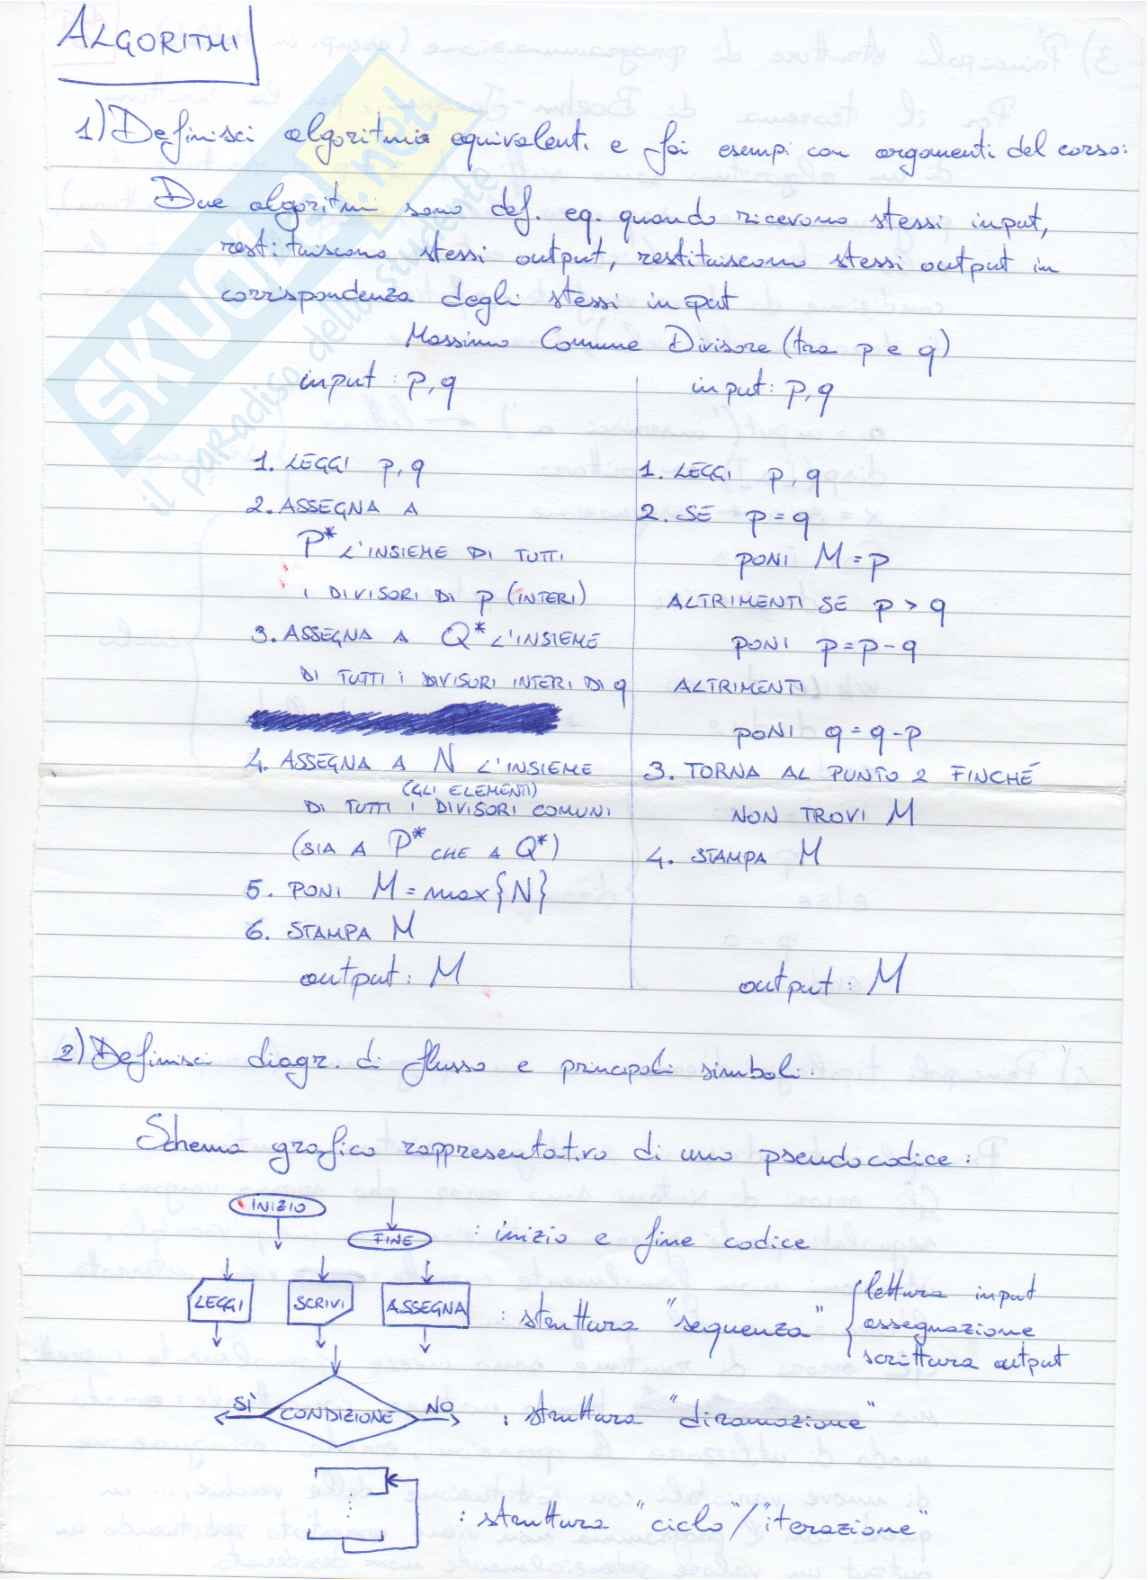 ALGORITMI
1) Definisci algoritmia equivalenti e fai esempi con argomenti del corso:
Due algoritmi sono def. eq. quando ricevono stessi input,
restituiscono stessi output, restituiscono stessi output in
corrispondenza degli stessi input
Massimo Comune Divisore (tra p e q)
input: p, q
1. LEGGI p, q
2. ASSEGNA A
P* L'INSIEME DI TUTTI
I DIVISORI DI p (INTERI)
3. ASSEGNA A Q* L'INSIEME
DI TUTTI I DIVISORI INTERI DI q
4. ASSEGNA A N L'INSIEME
(GLI ELEMENTI)
DI TUTTI I DIVISORI COMUNI
(SIA A P* CHE A Q*)
5. PONI M = max{N}
6. STAMPA M
output: M
input: p, q
1. LEGGI p, q
2. SE p = q
PONI M = p
ALTRIMENTI SE p > q
PONI p = p - q
ALTRIMENTI
PONI q = q - p
3. TORNA AL PUNTO 2 FINCHÉ
NON TROVI M
4. STAMPA M
output: M
2) Definisci diagr. di flusso e principali simboli:
Schema grafico rappresentativo di uno pseudocodice:
INIZIO
FINE : inizio e fine codice
LEGGI SCRIVI ASSEGNA : struttura "sequenza" { lettura input
assegnazione
scrittura output
SÌ CONDIZIONE NO : struttura "diramazione"
: struttura "ciclo"/"iterazione"
SKUOLA.net
il paradiso dello studente